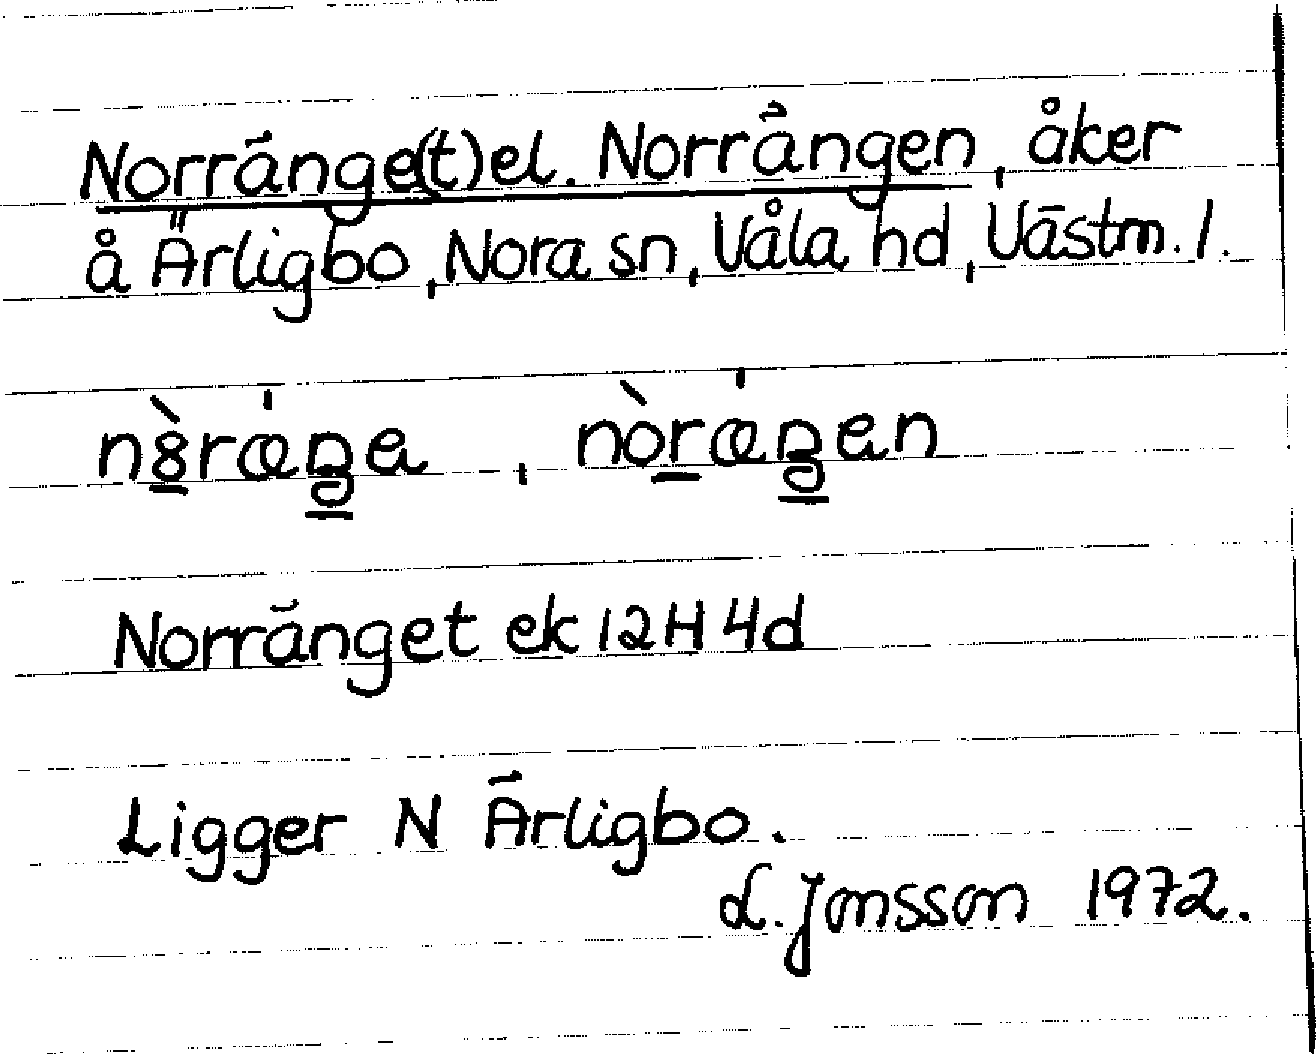 Norränge(t) el. Norrängen, åker
å Ärligbo, Nora sn, Våla hd, Västm. l.
Norränget ek 12H 4d
Ligger N Ärligbo.
L. Jonsson 1972.